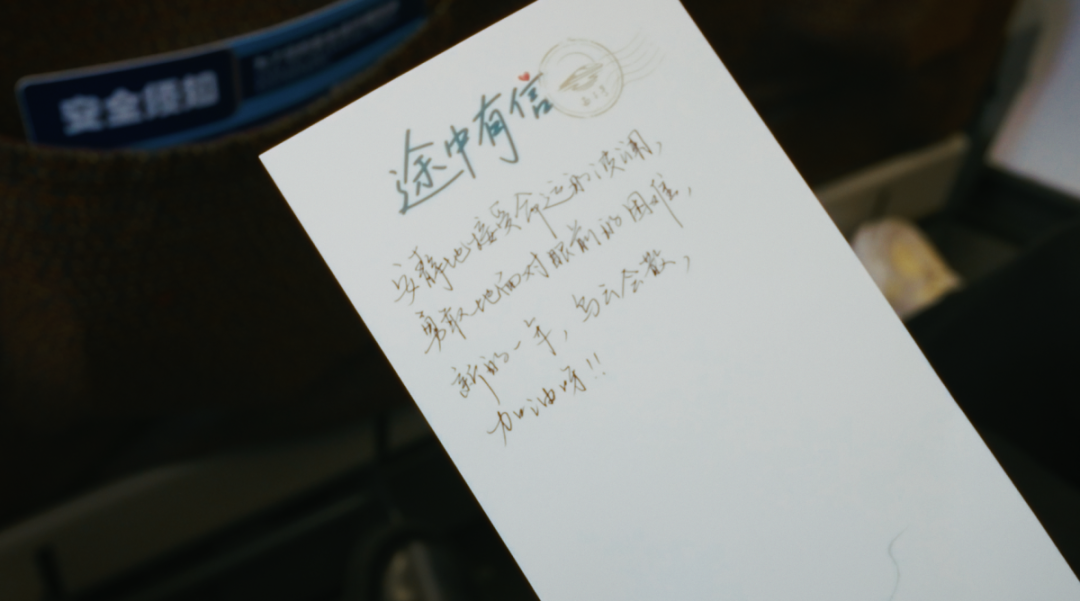 安全须知
途中有信
安静地接受命运的波澜，
勇敢地面对眼前的困难，
新的一年，乌云会散，
加油呀!!